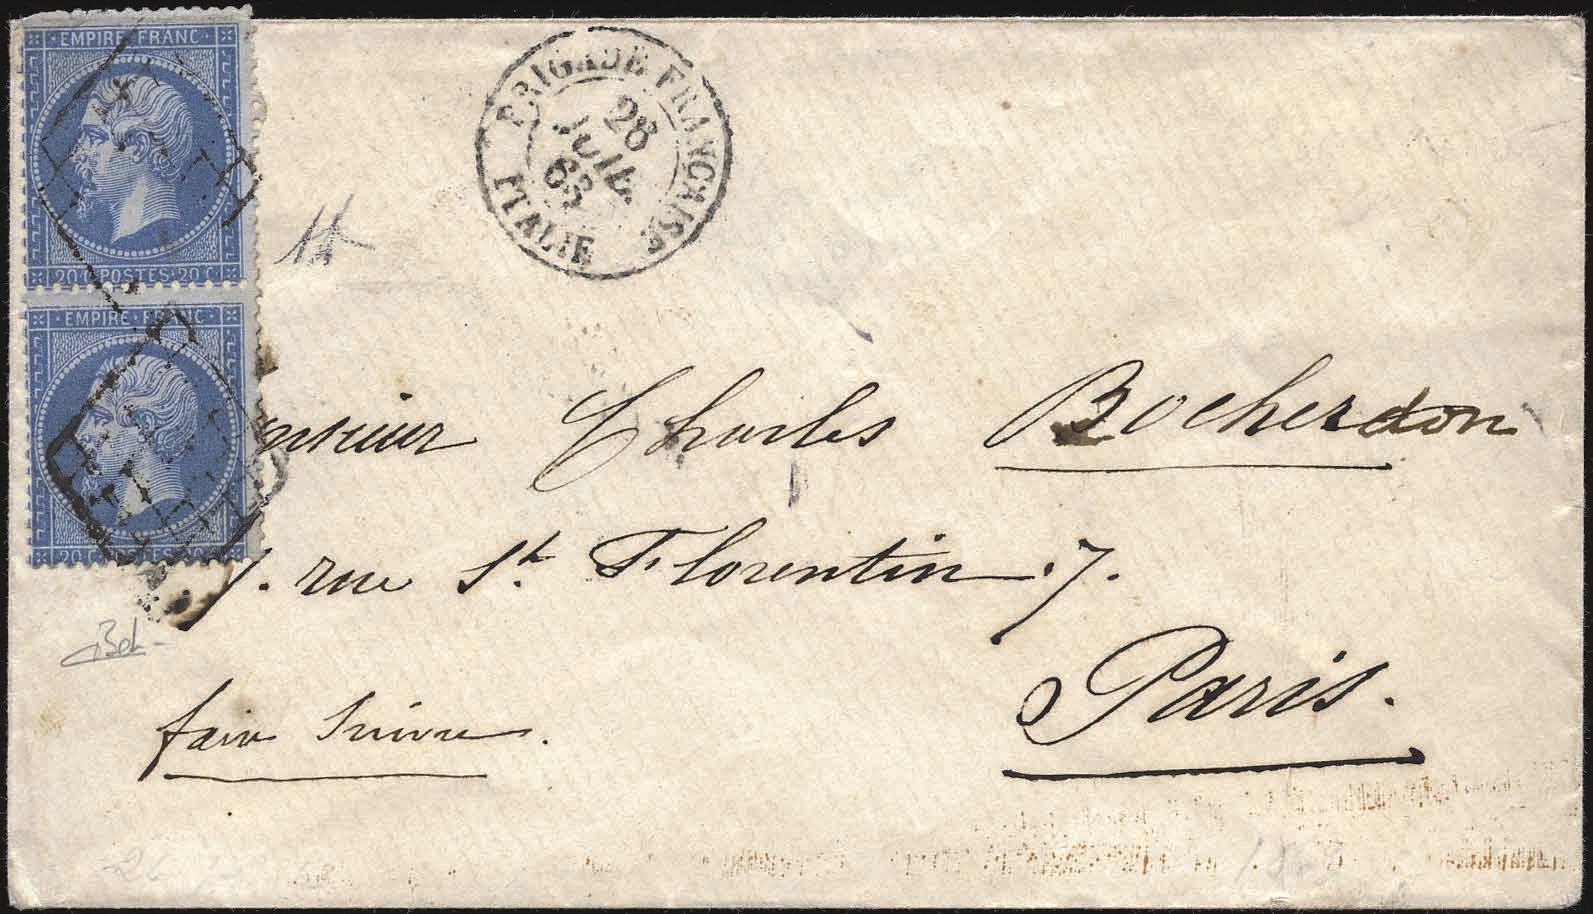 EMPIRE · FRANC ·
20 C · POSTES · 20 C
EMPIRE · FRANC ·
BRIGADE FRANÇAISE
28
JUIL.
ITALIE
nsieur Charles Bocherdon
7. rue St. Florentin .7.
Paris.
faire Suivre.